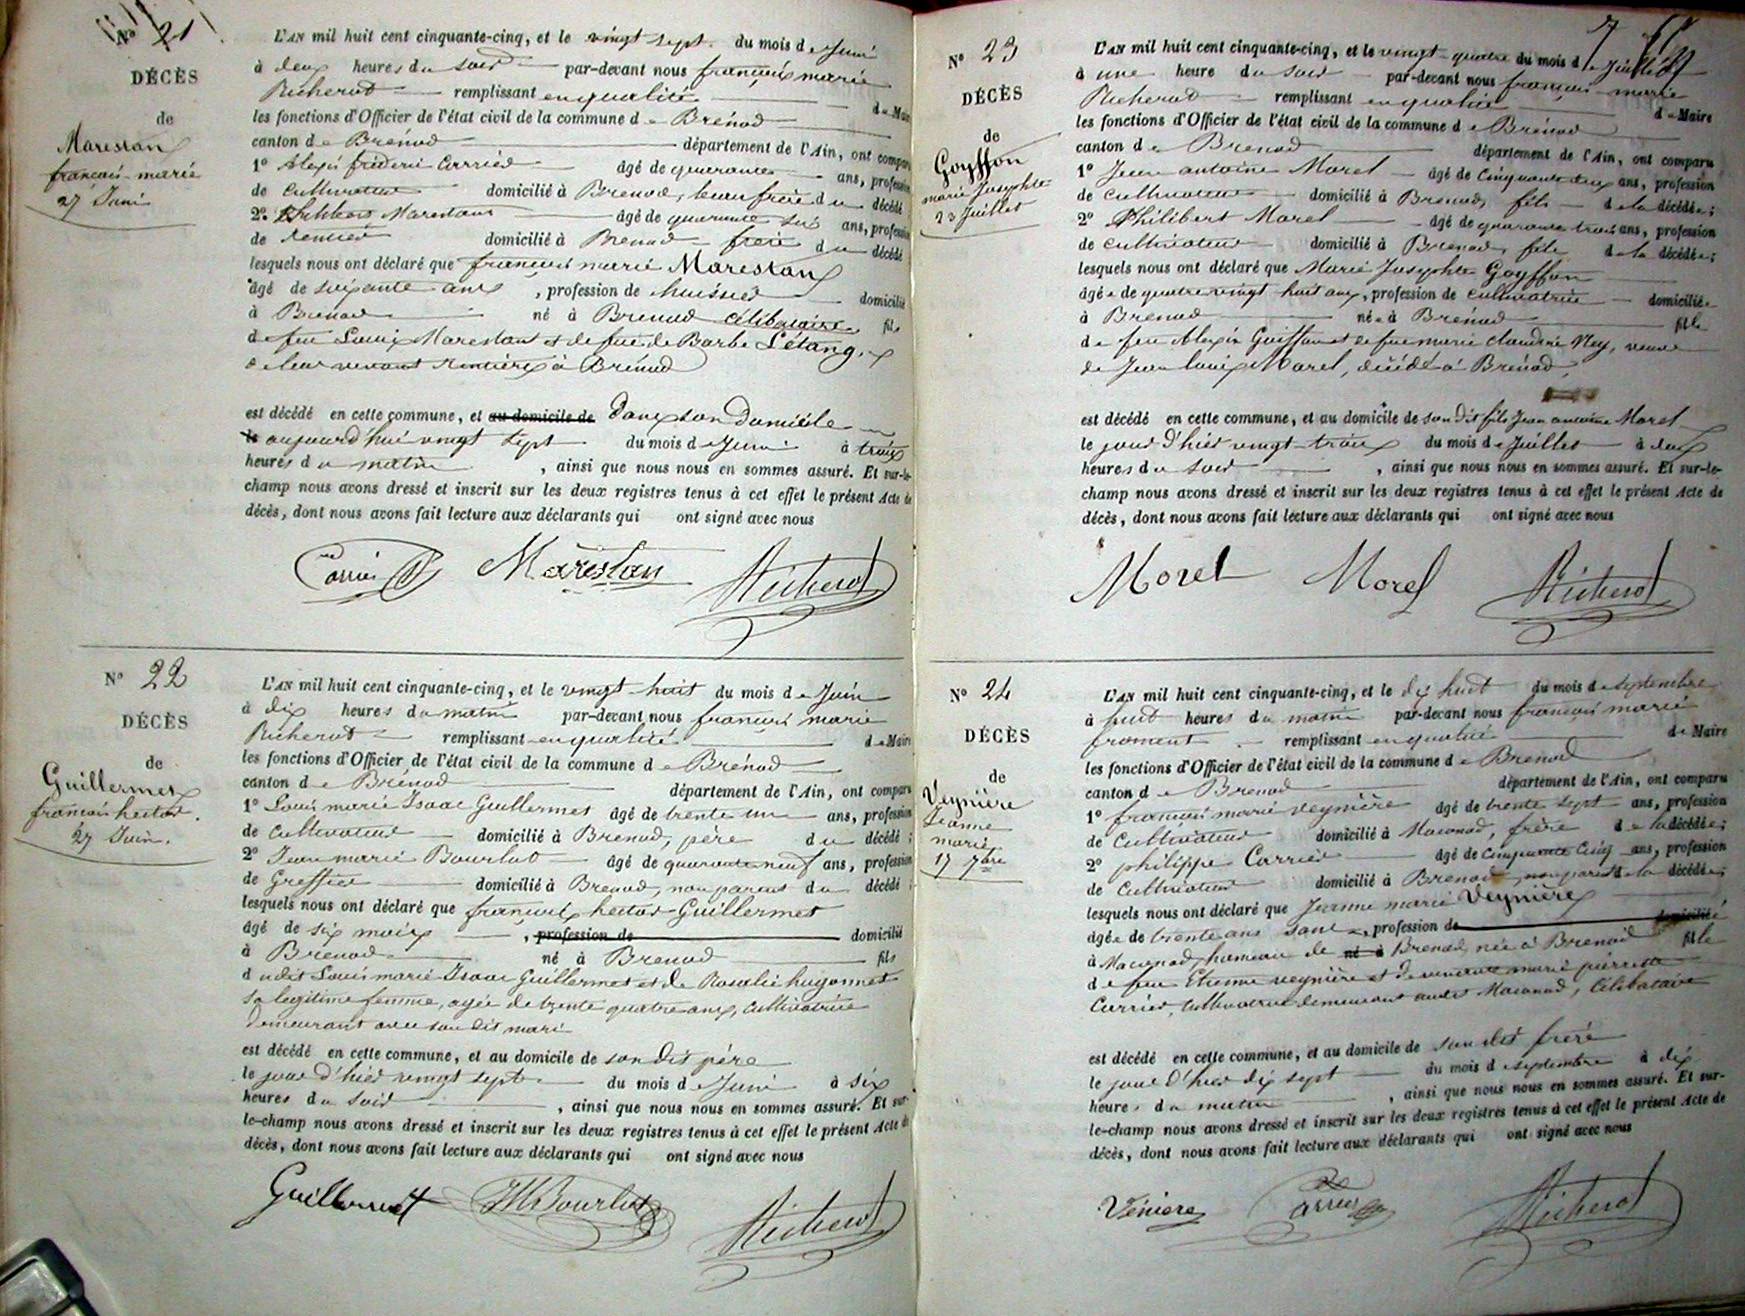 N° 21
DÉCÈS
de
Marestan
françois-marie
27 Juin
L'AN mil huit cent cinquante-cinq, et le vingt sept du mois de Juin
à deux heures du soir par-devant nous françois marie
Richerot remplissant en qualité de Maire
les fonctions d'Officier de l'état civil de la commune de Brénod
canton de Brénod département de l'Ain, ont comparu
1° Alexis fréderic Carrier âgé de quarante ans, profession
de Cultivateur domicilié à Brenod, beau frère du décédé
2° Marestan âgé de quarante six ans, profession
de Rentier domicilié à Brenod frère du décédé
lesquels nous ont déclaré que françois marie Marestan
âgé de soixante ans, profession de huissier domicilié
à Brenod né à Brenod célibataire fils
de feu Louis Marestan et de feue Barbe Létang,
de leur vivant rentiers à Brénod
est décédé en cette commune, et au domicile de dans son domicile
le aujourd'hui vingt sept du mois de Juin à trois
heures du matin, ainsi que nous nous en sommes assuré. Et sur-le-
champ nous avons dressé et inscrit sur les deux registres tenus à cet effet le présent Acte de
décès, dont nous avons fait lecture aux déclarants qui ont signé avec nous
Carrier Marestan Richerot
N° 22
DÉCÈS
de
Guillermet
françois hector.
27 Juin.
L'AN mil huit cent cinquante-cinq, et le vingt huit du mois de Juin
à dix heures du matin par-devant nous françois marie
Richerot remplissant en qualité de Maire
les fonctions d'Officier de l'état civil de la commune de Brénod
canton de Brénod département de l'Ain, ont comparu
1° Louis marie Isaac Guillermet âgé de trente un ans, profession
de Cultivateur domicilié à Brenod, père du décédé ;
2° Jean marie Bourlot âgé de quarante neuf ans, profession
de Greffier domicilié à Brenod, non parent du décédé ;
lesquels nous ont déclaré que françois hector Guillermet
âgé de six mois, profession de domicilié
à Brenod né à Brenod fils
dudit Louis marie Isaac Guillermet et de Rosalie hugonnet
sa legitime femme, agée de trente quatre ans, cultivatrice
demeurant avec son dit mari
est décédé en cette commune, et au domicile de son dit père
le jour d'hier vingt sept du mois de Juin à six
heures du soir, ainsi que nous nous en sommes assuré. Et sur-
le-champ nous avons dressé et inscrit sur les deux registres tenus à cet effet le présent Acte de
décès, dont nous avons fait lecture aux déclarants qui ont signé avec nous
Guillermet JM Bourlot Richerot
N° 23
DÉCÈS
de
Goyffon
marie Josephte
23 Juillet
L'AN mil huit cent cinquante-cinq, et le vingt-quatre du mois de Juillet
à une heure du soir par-devant nous françois-marie
Richerot remplissant en qualité de Maire
les fonctions d'Officier de l'état civil de la commune de Brénod
canton de Brenod département de l'Ain, ont comparu
1° Jean antoine Morel âgé de cinquante deux ans, profession
de cultivateur domicilié à Brenod, fils de la décédée ;
2° Philibert Morel âgé de quarante trois ans, profession
de cultivateur domicilié à Brenod, fils de la décédée ;
lesquels nous ont déclaré que Marie Josephte Goyffon
âgée de quatre vingt huit ans, profession de cultivatrice domiciliée
à Brenod née à Brénod fille
de feu Alexis Goiffon et de feue marie claudine Ney, veuve
de Jean louis Morel, décédé à Brénod,
est décédé en cette commune, et au domicile de son dit fils Jean antoine Morel
le jour d'hier vingt-trois du mois de Juillet à deux
heures du soir, ainsi que nous nous en sommes assuré. Et sur-le-
champ nous avons dressé et inscrit sur les deux registres tenus à cet effet le présent Acte de
décès, dont nous avons fait lecture aux déclarants qui ont signé avec nous
Morel Morel Richerot
N° 24
DÉCÈS
de
Veynière
Jeanne
marie
17 7bre
L'AN mil huit cent cinquante-cinq, et le dix huit du mois de septembre
à huit heures du matin par-devant nous françois marie
froment remplissant en qualité de Maire
les fonctions d'Officier de l'état civil de la commune de Brenod
canton de Brenod département de l'Ain, ont comparu
1° françois marie veynière âgé de trente sept ans, profession
de Cultivateur domicilié à Maconod, frère de la décédée ;
2° philippe Carrier âgé de cinquante cinq ans, profession
de Cultivateur domicilié à Brenod, non parent de la décédée ;
lesquels nous ont déclaré que Jeanne marie Veynière
âgée de trente ans sans, profession de domicilié
à Maconod hameau de né à Brenod, née à Brenod fille
de feu Etienne veynière et de vivante marie pierrette
Carrier, cultivatrice demeurant audit Maconod, Célibataire
est décédé en cette commune, et au domicile de son dit frère
le jour d'hier dix sept du mois de septembre à dix
heures du matin, ainsi que nous nous en sommes assuré. Et sur-
le-champ nous avons dressé et inscrit sur les deux registres tenus à cet effet le présent Acte de
décès, dont nous avons fait lecture aux déclarants qui ont signé avec nous
Vénière Carrier Richerot